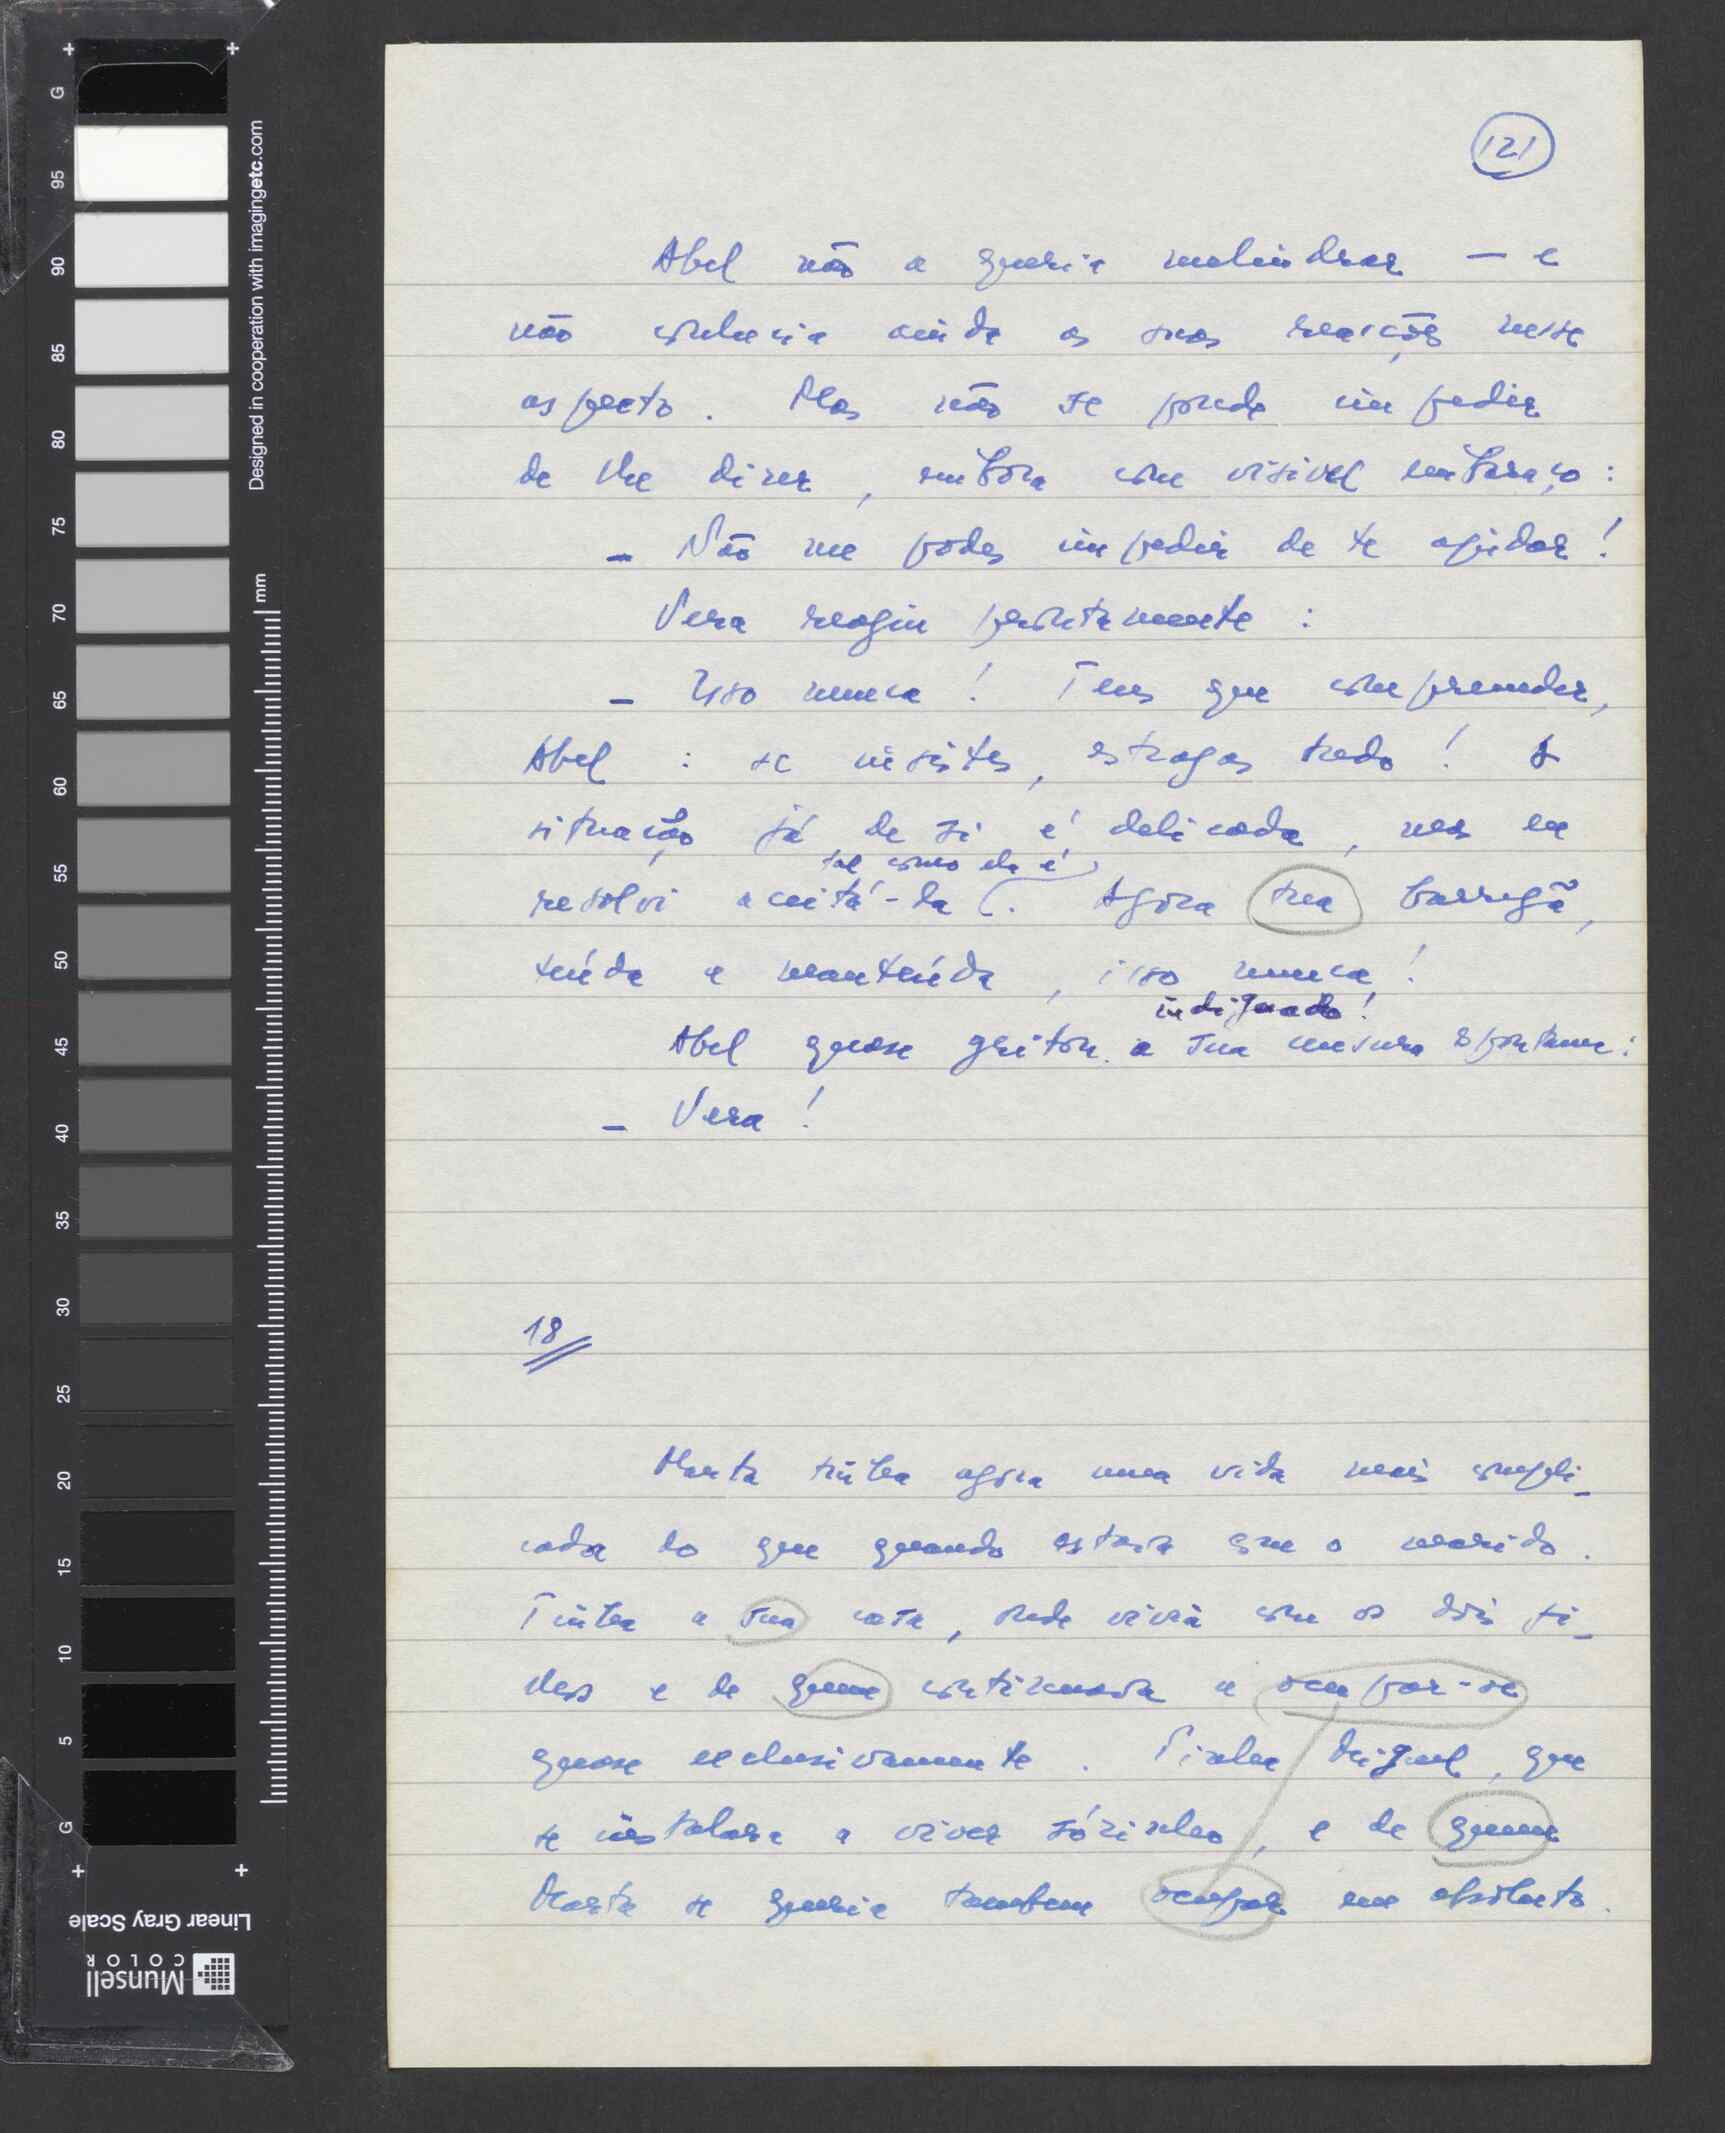 121
Abel não a queria melindrar — e
não conhecia ainda as suas reacções nesse
aspecto. Mas não se poude impedir
de lhe dizer, embora com visivel embaraço:
– Não me podes impedir de te ajudar!
Vera reagiu prontamente:
– Isso nunca! Tens que compreender,
Abel: se insistes, estragas tudo! A
situação já de si é delicada, mas eu
tal como ela é
resolvi aceitá-la. Agora tua barregã,
teúda e manteúda, isso nunca!
indignado!
Abel quase gritou a sua censura espontanea:
– Vera!
18
Marta tinha agora uma vida mais compli-
cada do que quando estava com o marido.
Tinha a sua casa, onde vivia com os dois fi-
lhos e de quem continuava a ocupar-se
quase exclusivamente. Tinha Miguel, que
se instalara a viver sózinho, e de quem
Marta se queria tambem ocupar em absoluto.
G
95
90
85
80
75
70
65
60
55
50
45
40
35
30
25
20
15
10
5
G
Designed in cooperation with imagingetc.com
mm
Linear Gray Scale
Munsell
COLOR